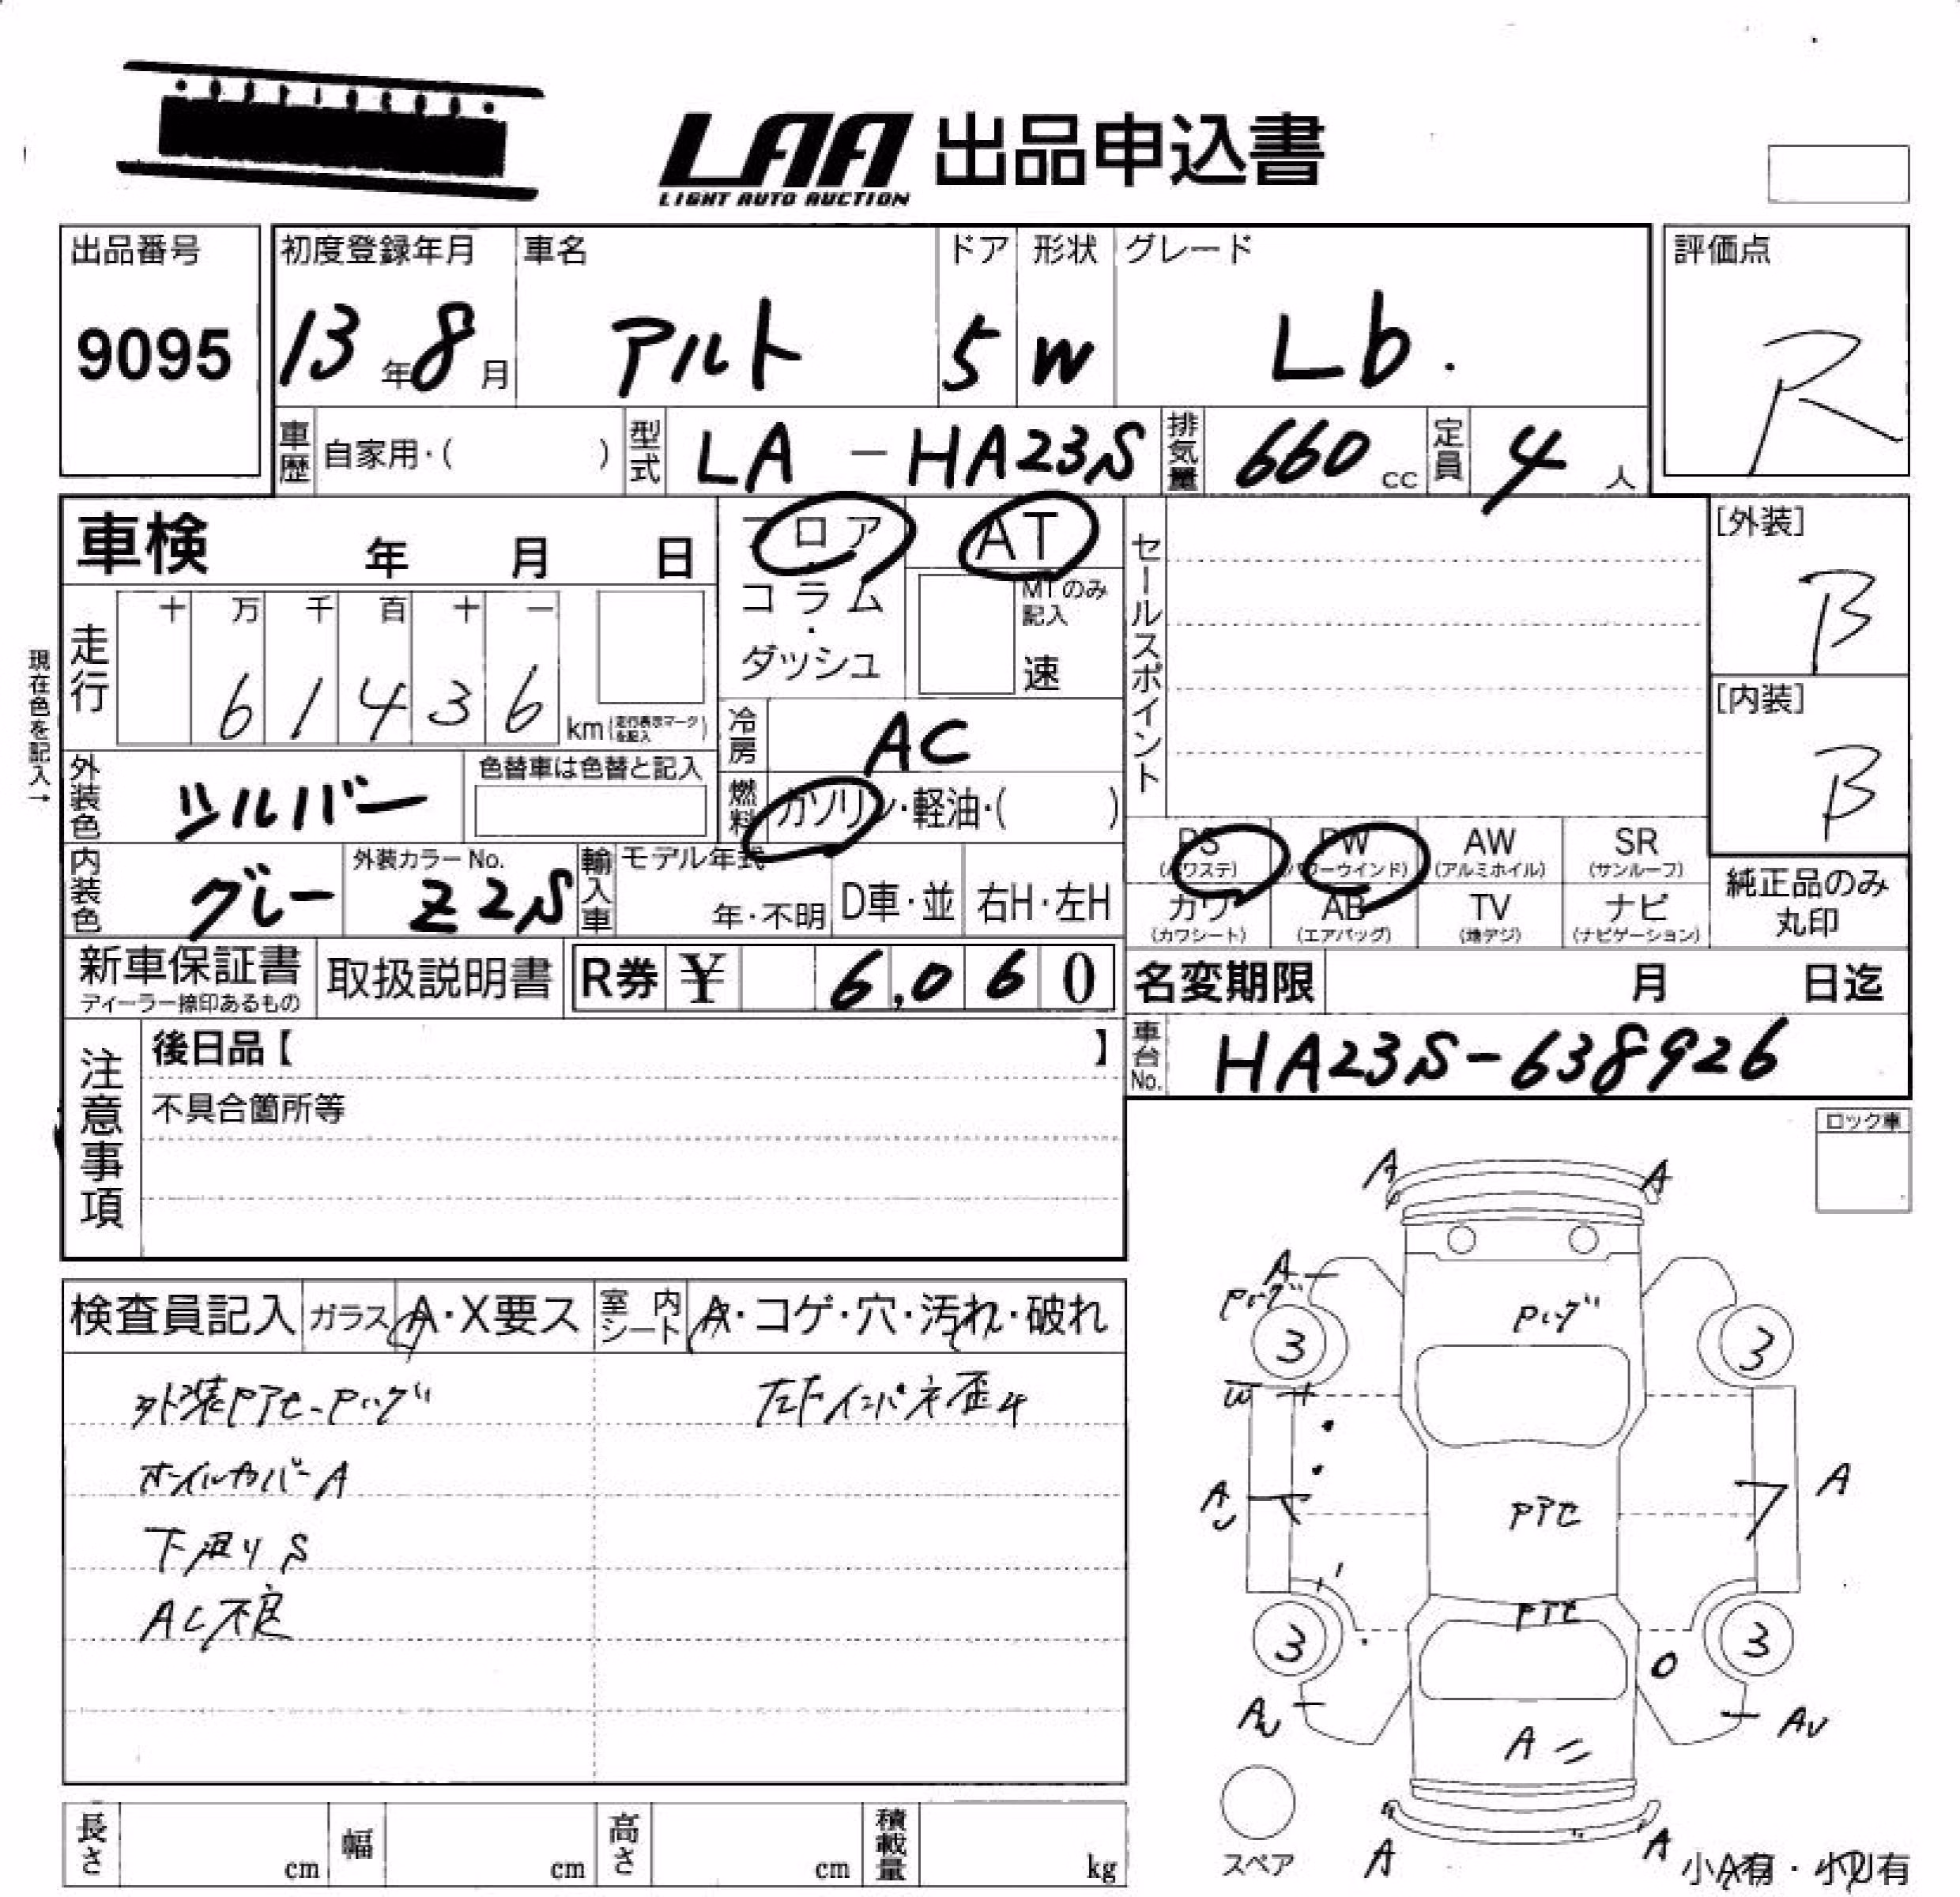 LAA 出品申込書
LIGHT AUTO AUCTION
出品番号 初度登録年月 車名 ドア 形状 グレード 評価点
9095 13年8月 アルト 5 W Lb. R
車歴 自家用・( ) 型式 LA - HA23S 排気量 660 cc 定員 4 人
車検 年 月 日 フロア AT
コラム・ダッシュ MTのみ記入 速
セールスポイント
[外装] B
[内装] B
現在色を記入→
走行 十 万 千 百 十 一
6 1 4 3 6 km(走行表示マークを記入)
冷房 AC
外装色 シルバー 色替車は色替と記入 燃料 ガソリン・軽油・( )
PS (パワステ) PW (パワーウインド) AW (アルミホイル) SR (サンルーフ)
内装色 グレー 外装カラーNo. Z2S 輸入車 モデル年式 年・不明 D車・並 右H・左H
カワ (カワシート) AB (エアバッグ) TV (地デジ) ナビ (ナビゲーション)
純正品のみ丸印
新車保証書 ディーラー捺印あるもの 取扱説明書 R券 ¥ 6,060 名変期限 月 日迄
注意事項 後日品【 】 車台No. HA23S-638926
不具合箇所等
ロック車
A A
A
Pハゲ Pハゲ
3 3
検査員記入 ガラス A・X要ス 室内シート A・コゲ・穴・汚れ・破れ
外装Pアセ-Pハゲ
W
オイルカバーA
A A
下廻りS
Pアセ
AC不良
Pアセ
3 3
AU AU
A
スペア
A A
小A有・小U有
長さ cm 幅 cm 高さ cm 積載量 kg